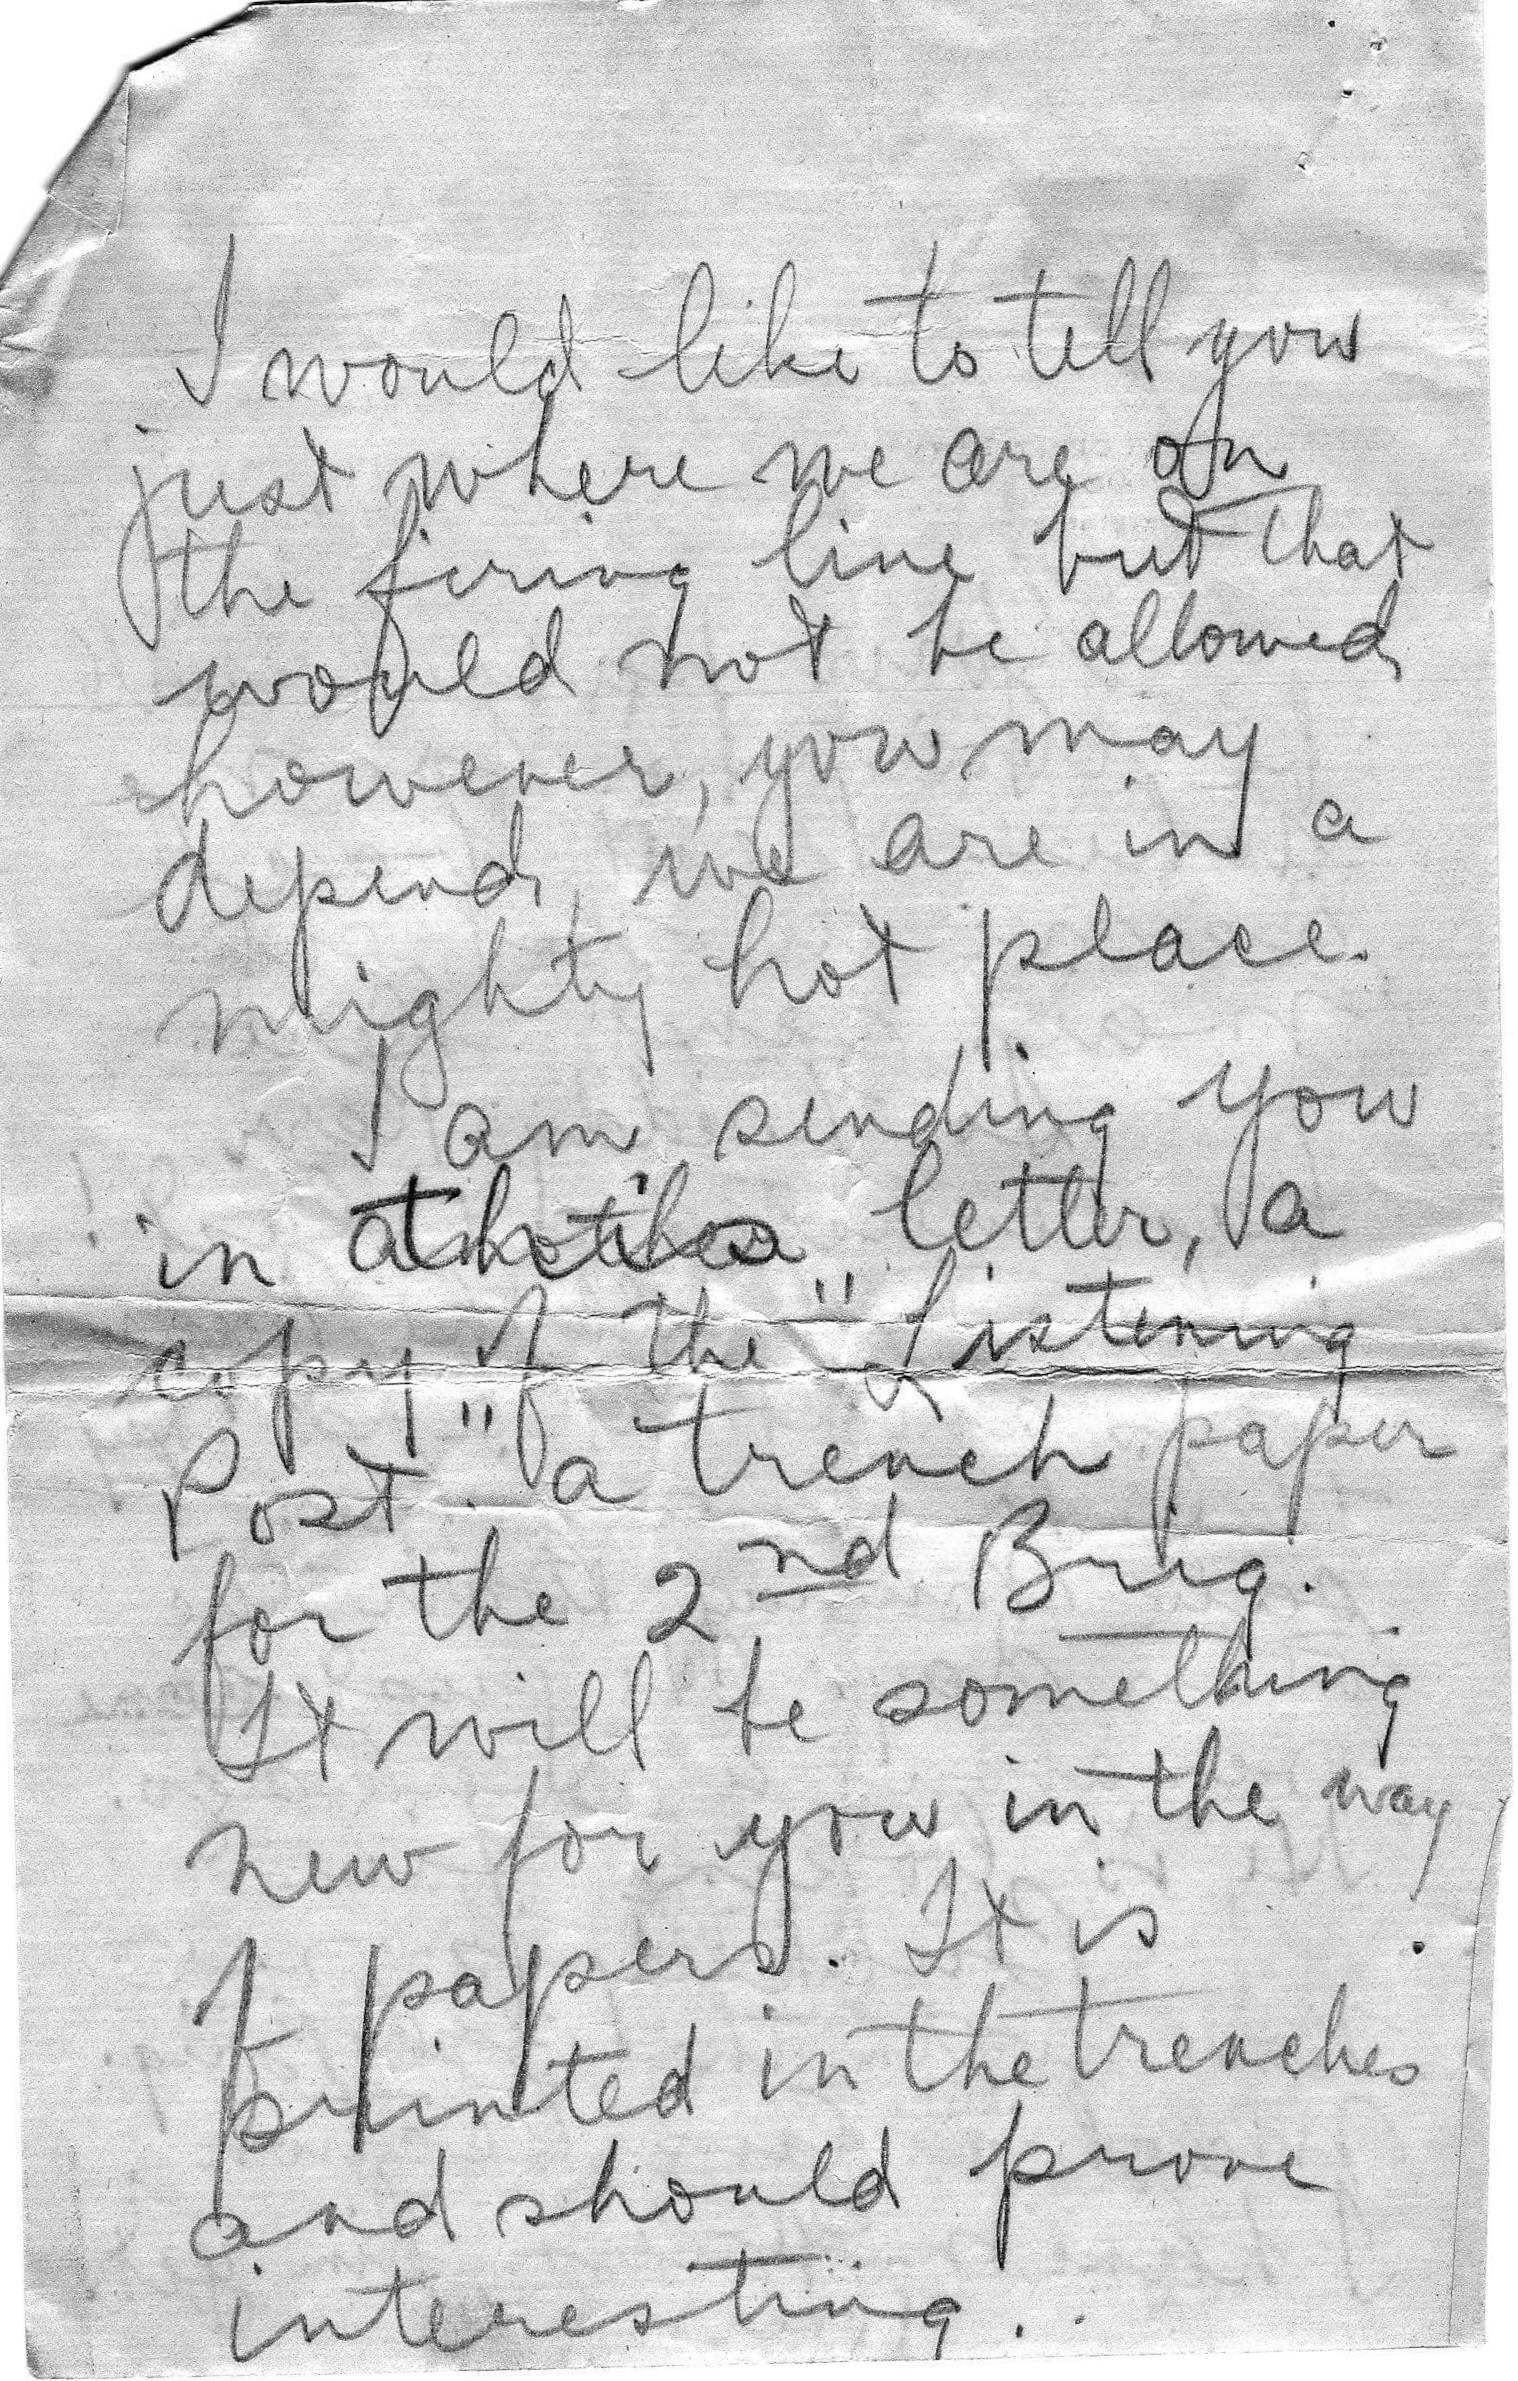 I would like to tell you
just where we are on
the firing line but that
would not be allowed
however, you may
depend, we are in a
mighty hot place.
I am sending you
in letter, a
copy of the "Listening
Post" a trench paper
for the 2nd Brig.
It will be something
new for you in the way
of papers. It is
printed in the trenches
and should prove
interesting.